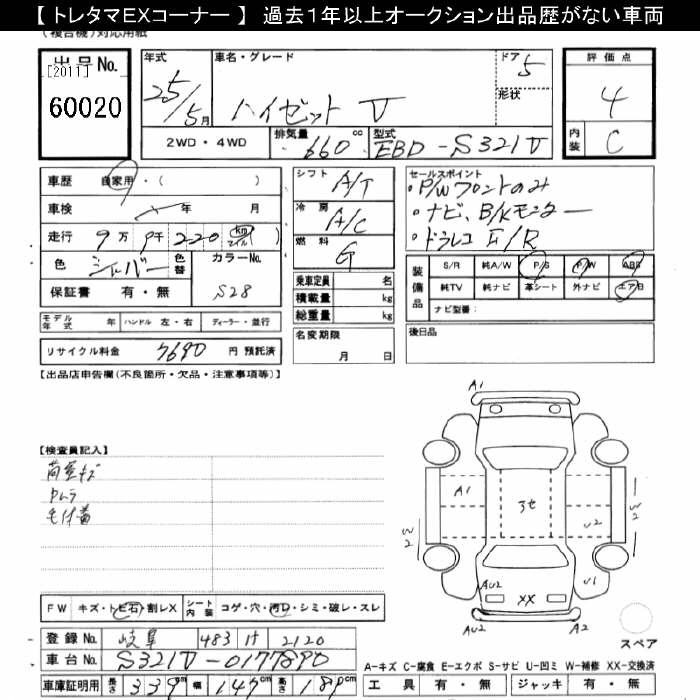 【 トレタマEXコーナー 】 過去1年以上オークション出品歴がない車両
(複合機)対応用紙
出品No.
[2011]
60020
年式
25/5月
車名・グレード
ハイゼット V
ドア 5
形状
評価点
4
内装 C
2WD・4WD
排気量 660 cc
型式 EBD-S321V
車歴 自家用・( )
車検 年 月
走行 9万 9千 220 (km マイル)
色 シルバー 色替
カラーNo. S28
保証書 有・無
シフト A/T
冷房 A/C
燃料 G
乗車定員 名
積載量 kg
総重量 kg
セールスポイント
・P/Wフロントのみ
・ナビ、B/Kモニター
・ドラレコ F/R
装備品
S/R 純A/W P/S P/W ABS
純TV 純ナビ 革シート 外ナビ エアB
ナビ型番:
モデル年式 年 ハンドル 左・右 ディーラー・並行
名変期限 月 日
後日品
リサイクル料金 7690 円 預託済
【出品店申告欄(不良箇所・欠品・注意事項等)】
【検査員記入】
荷室キズ
カムラ
毛付着
A1
A1
3セ
W2
W2
U2
U1
AU2
XX
AU2
A2
スペア
FW キズ・トビ石・割レX
シート内装 コゲ・穴・汚レ・シミ・破レ・スレ
登録No. 岐阜 483 け 2120
車台No. S321V-0177890
車庫証明用 長さ 339cm 幅 147cm 高さ 189cm
A-キズ C-腐食 E-エクボ S-サビ U-凹ミ W-補修 XX-交換済
工具 有・無 ジャッキ 有・無